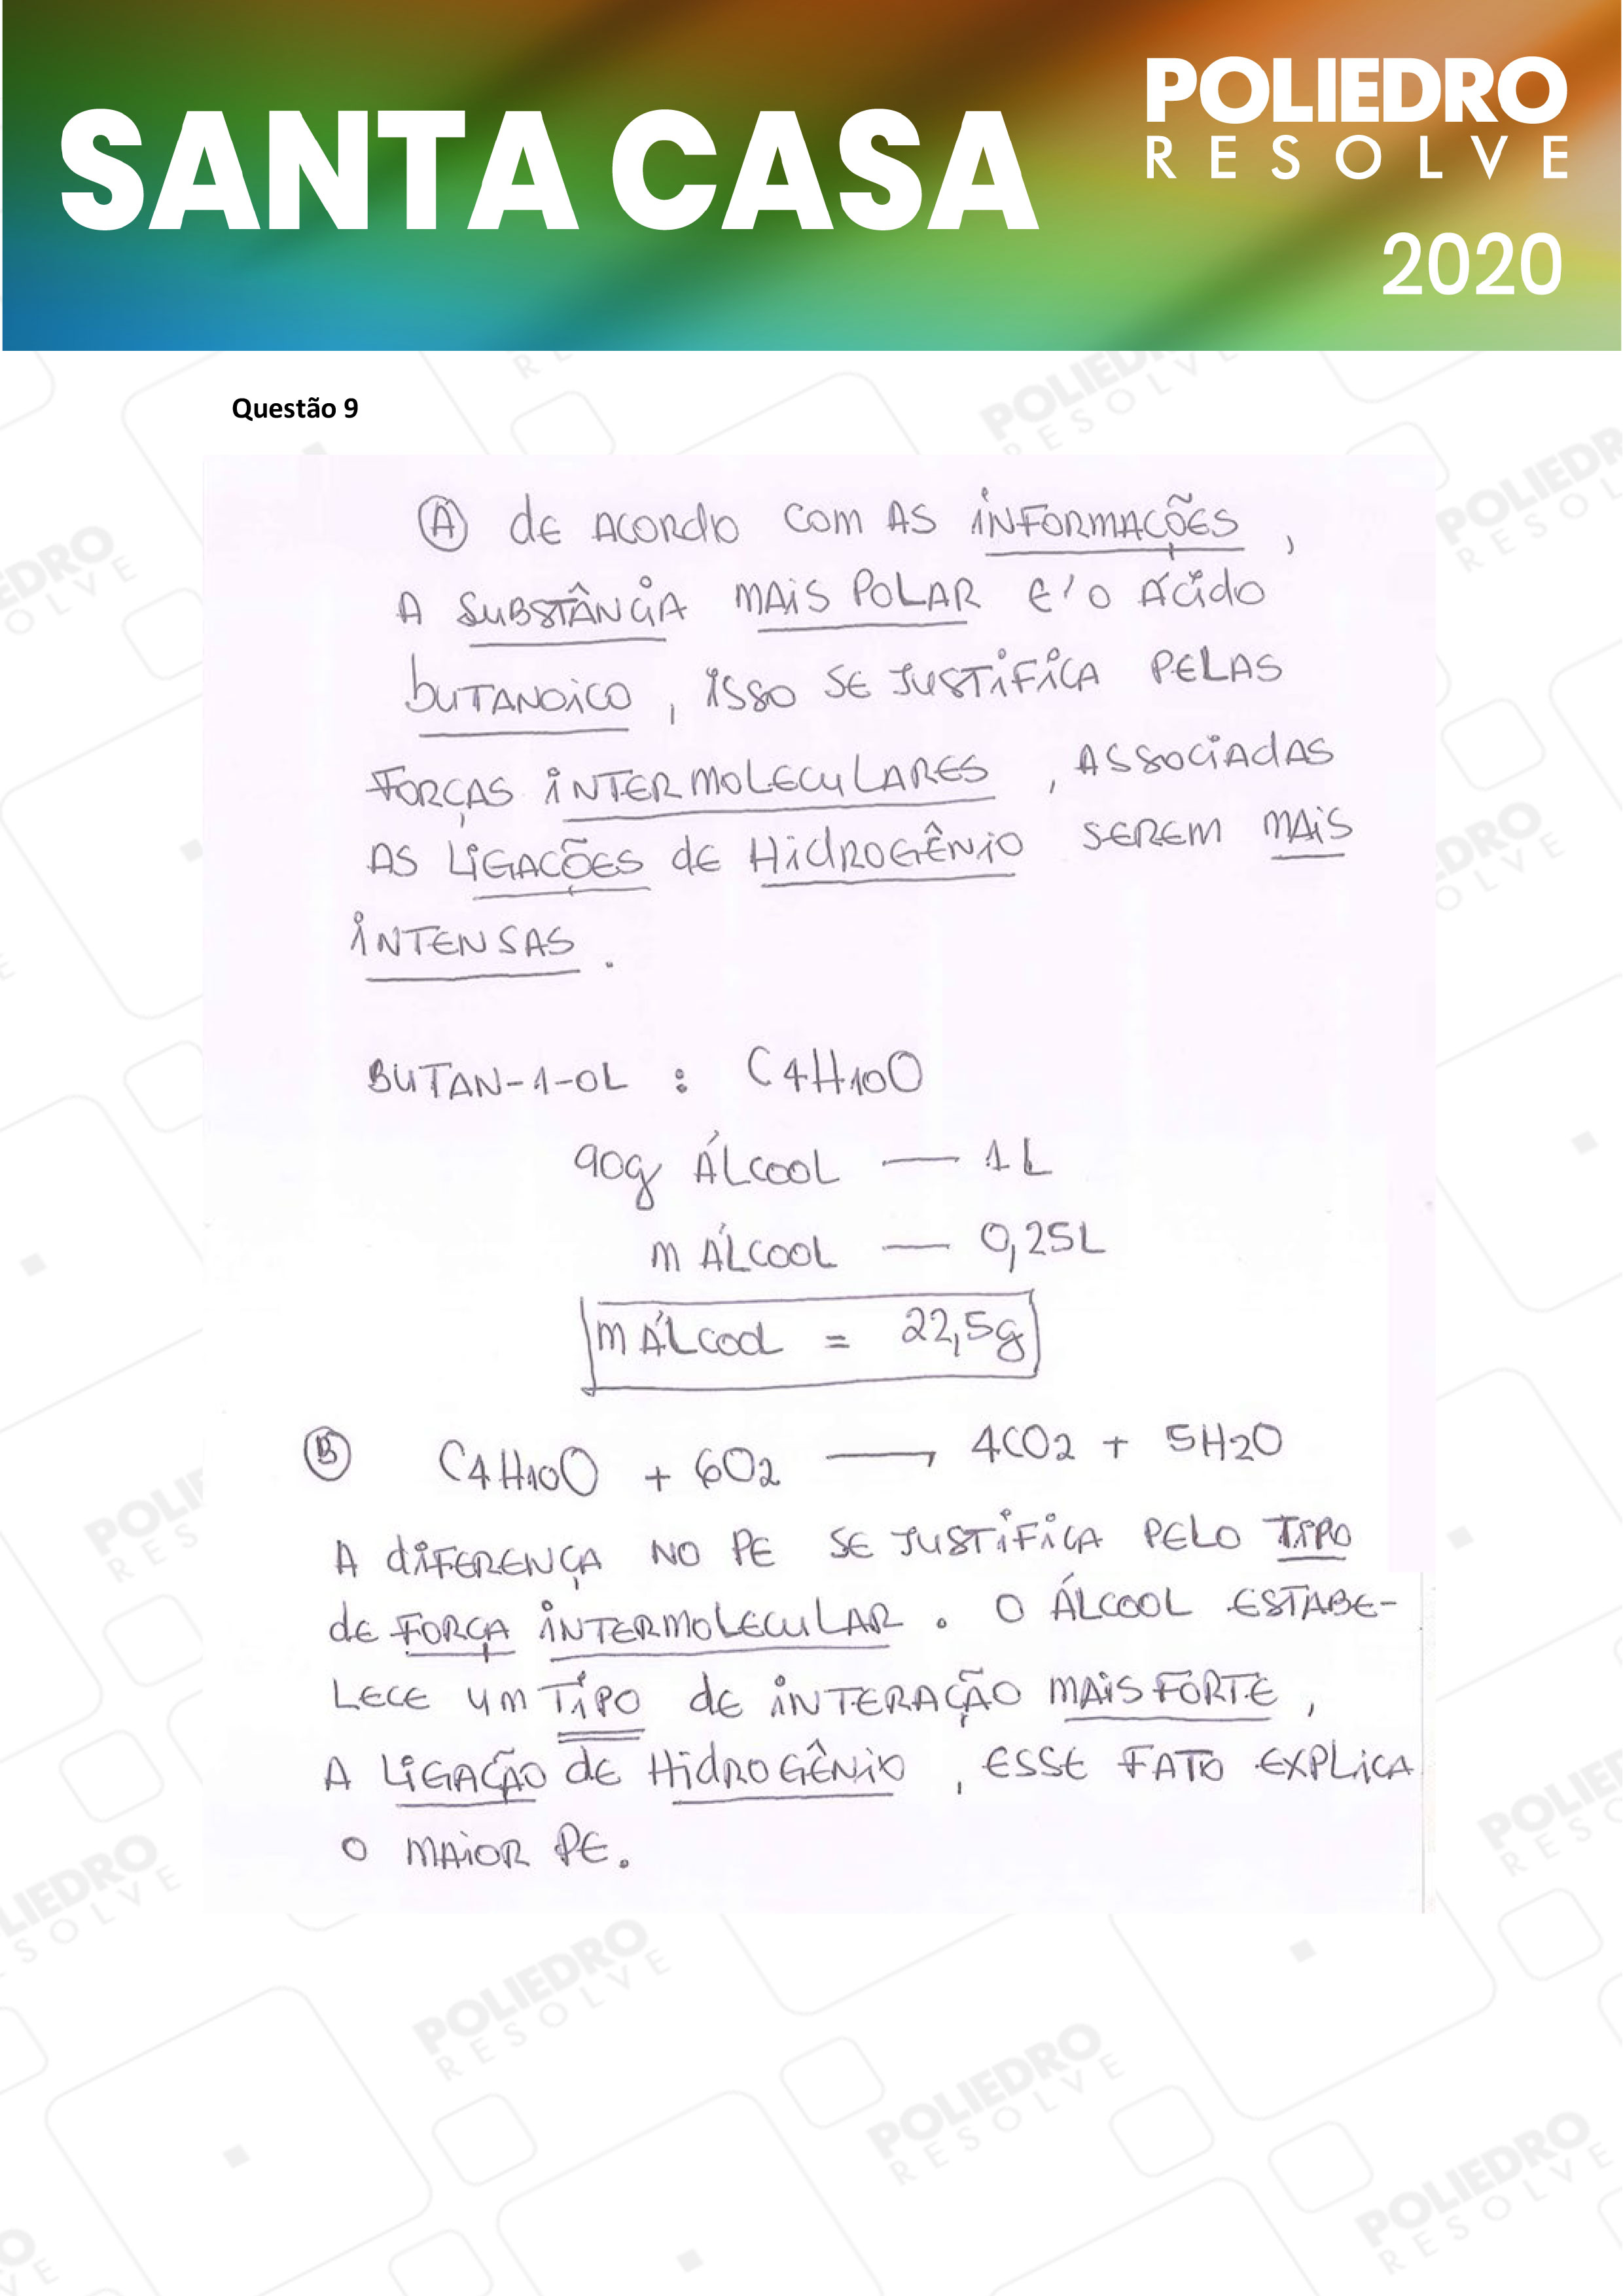 SANTA CASA
POLIEDRO
RESOLVE
2020
Questão 9
A DE ACORDO COM AS INFORMAÇÕES,
A SUBSTÂNCIA MAIS POLAR É O ÁCIDO
BUTANOICO, ISSO SE JUSTIFICA PELAS
FORÇAS INTERMOLECULARES, ASSOCIADAS
AS LIGAÇÕES DE HIDROGÊNIO SEREM MAIS
INTENSAS.
BUTAN-1-OL : C4H10O
90g ÁLCOOL — 1L
m ÁLCOOL — 0,25L
m ÁLCOOL = 22,5g
B C4H10O + 6O2 → 4CO2 + 5H2O
A DIFERENÇA NO PE SE JUSTIFICA PELO TIPO
DE FORÇA INTERMOLECULAR. O ÁLCOOL ESTABE-
LECE UM TIPO DE INTERAÇÃO MAIS FORTE,
A LIGAÇÃO DE HIDROGÊNIO, ESSE FATO EXPLICA
O MAIOR PE.